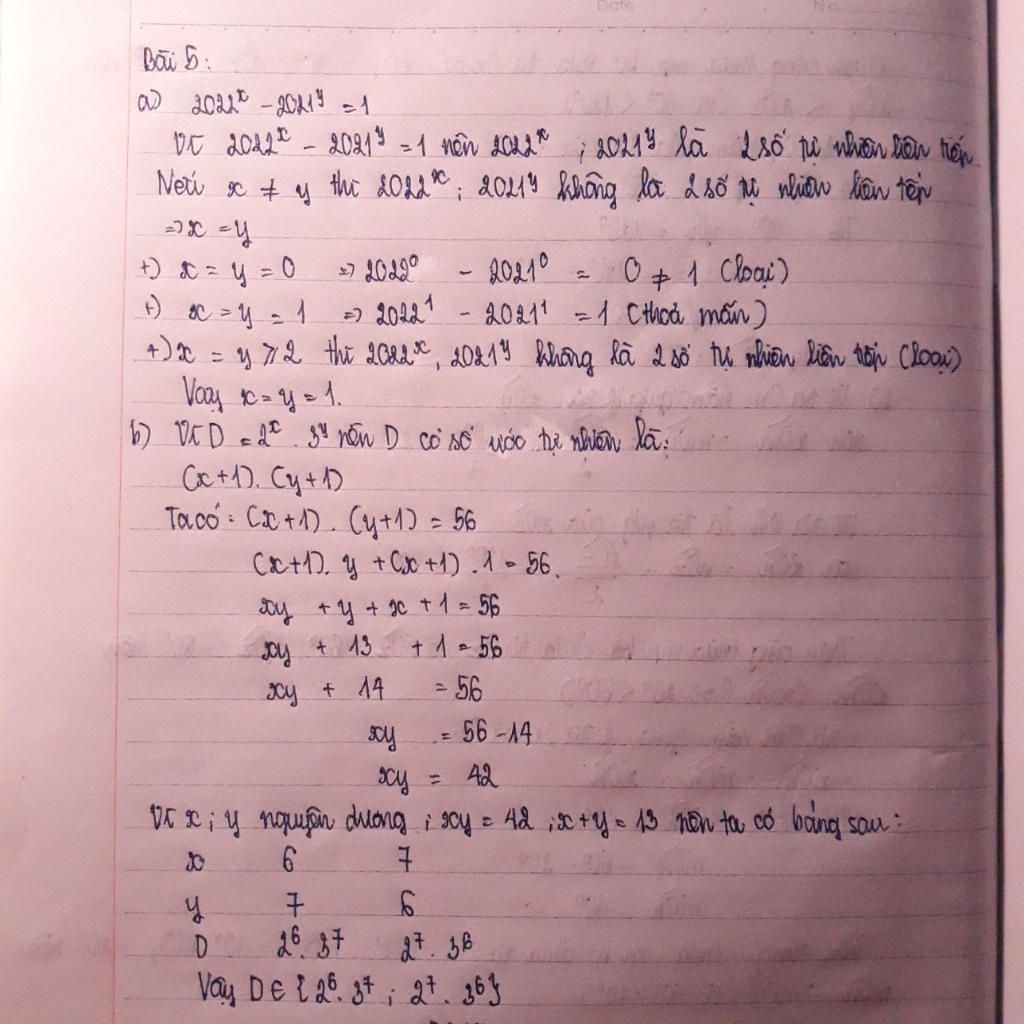 Date No
Bài 5:
a) 2022ˣ - 2021ʸ = 1
Vì 2022ˣ - 2021ʸ = 1 nên 2022ˣ ; 2021ʸ là 2 số tự nhiên liên tiếp.
Nếu x ≠ y thì 2022ˣ ; 2021ʸ không là 2 số tự nhiên liên tiếp
=> x = y
+) x = y = 0 => 2022⁰ - 2021⁰ = 0 ≠ 1 (loại)
+) x = y = 1 => 2022¹ - 2021¹ = 1 (thoả mãn)
+) x = y ⩾ 2 thì 2022ˣ, 2021ʸ không là 2 số tự nhiên liên tiếp (loại)
Vậy x = y = 1.
b) Vì D = 2ˣ . 3ʸ nên D có số ước tự nhiên là:
(x+1). (y+1)
Ta có: (x+1) . (y+1) = 56
(x+1). y + (x+1) . 1 = 56.
xy + y + x + 1 = 56
xy + 13 + 1 = 56
xy + 14 = 56
xy = 56 - 14
xy = 42
Vì x ; y nguyên dương ; xy = 42 ; x + y = 13 nên ta có bảng sau:
x 6 7
y 7 6
D 2⁶. 3⁷ 2⁷. 3⁶
Vậy D ∈ {2⁶. 3⁷ ; 2⁷. 3⁶}